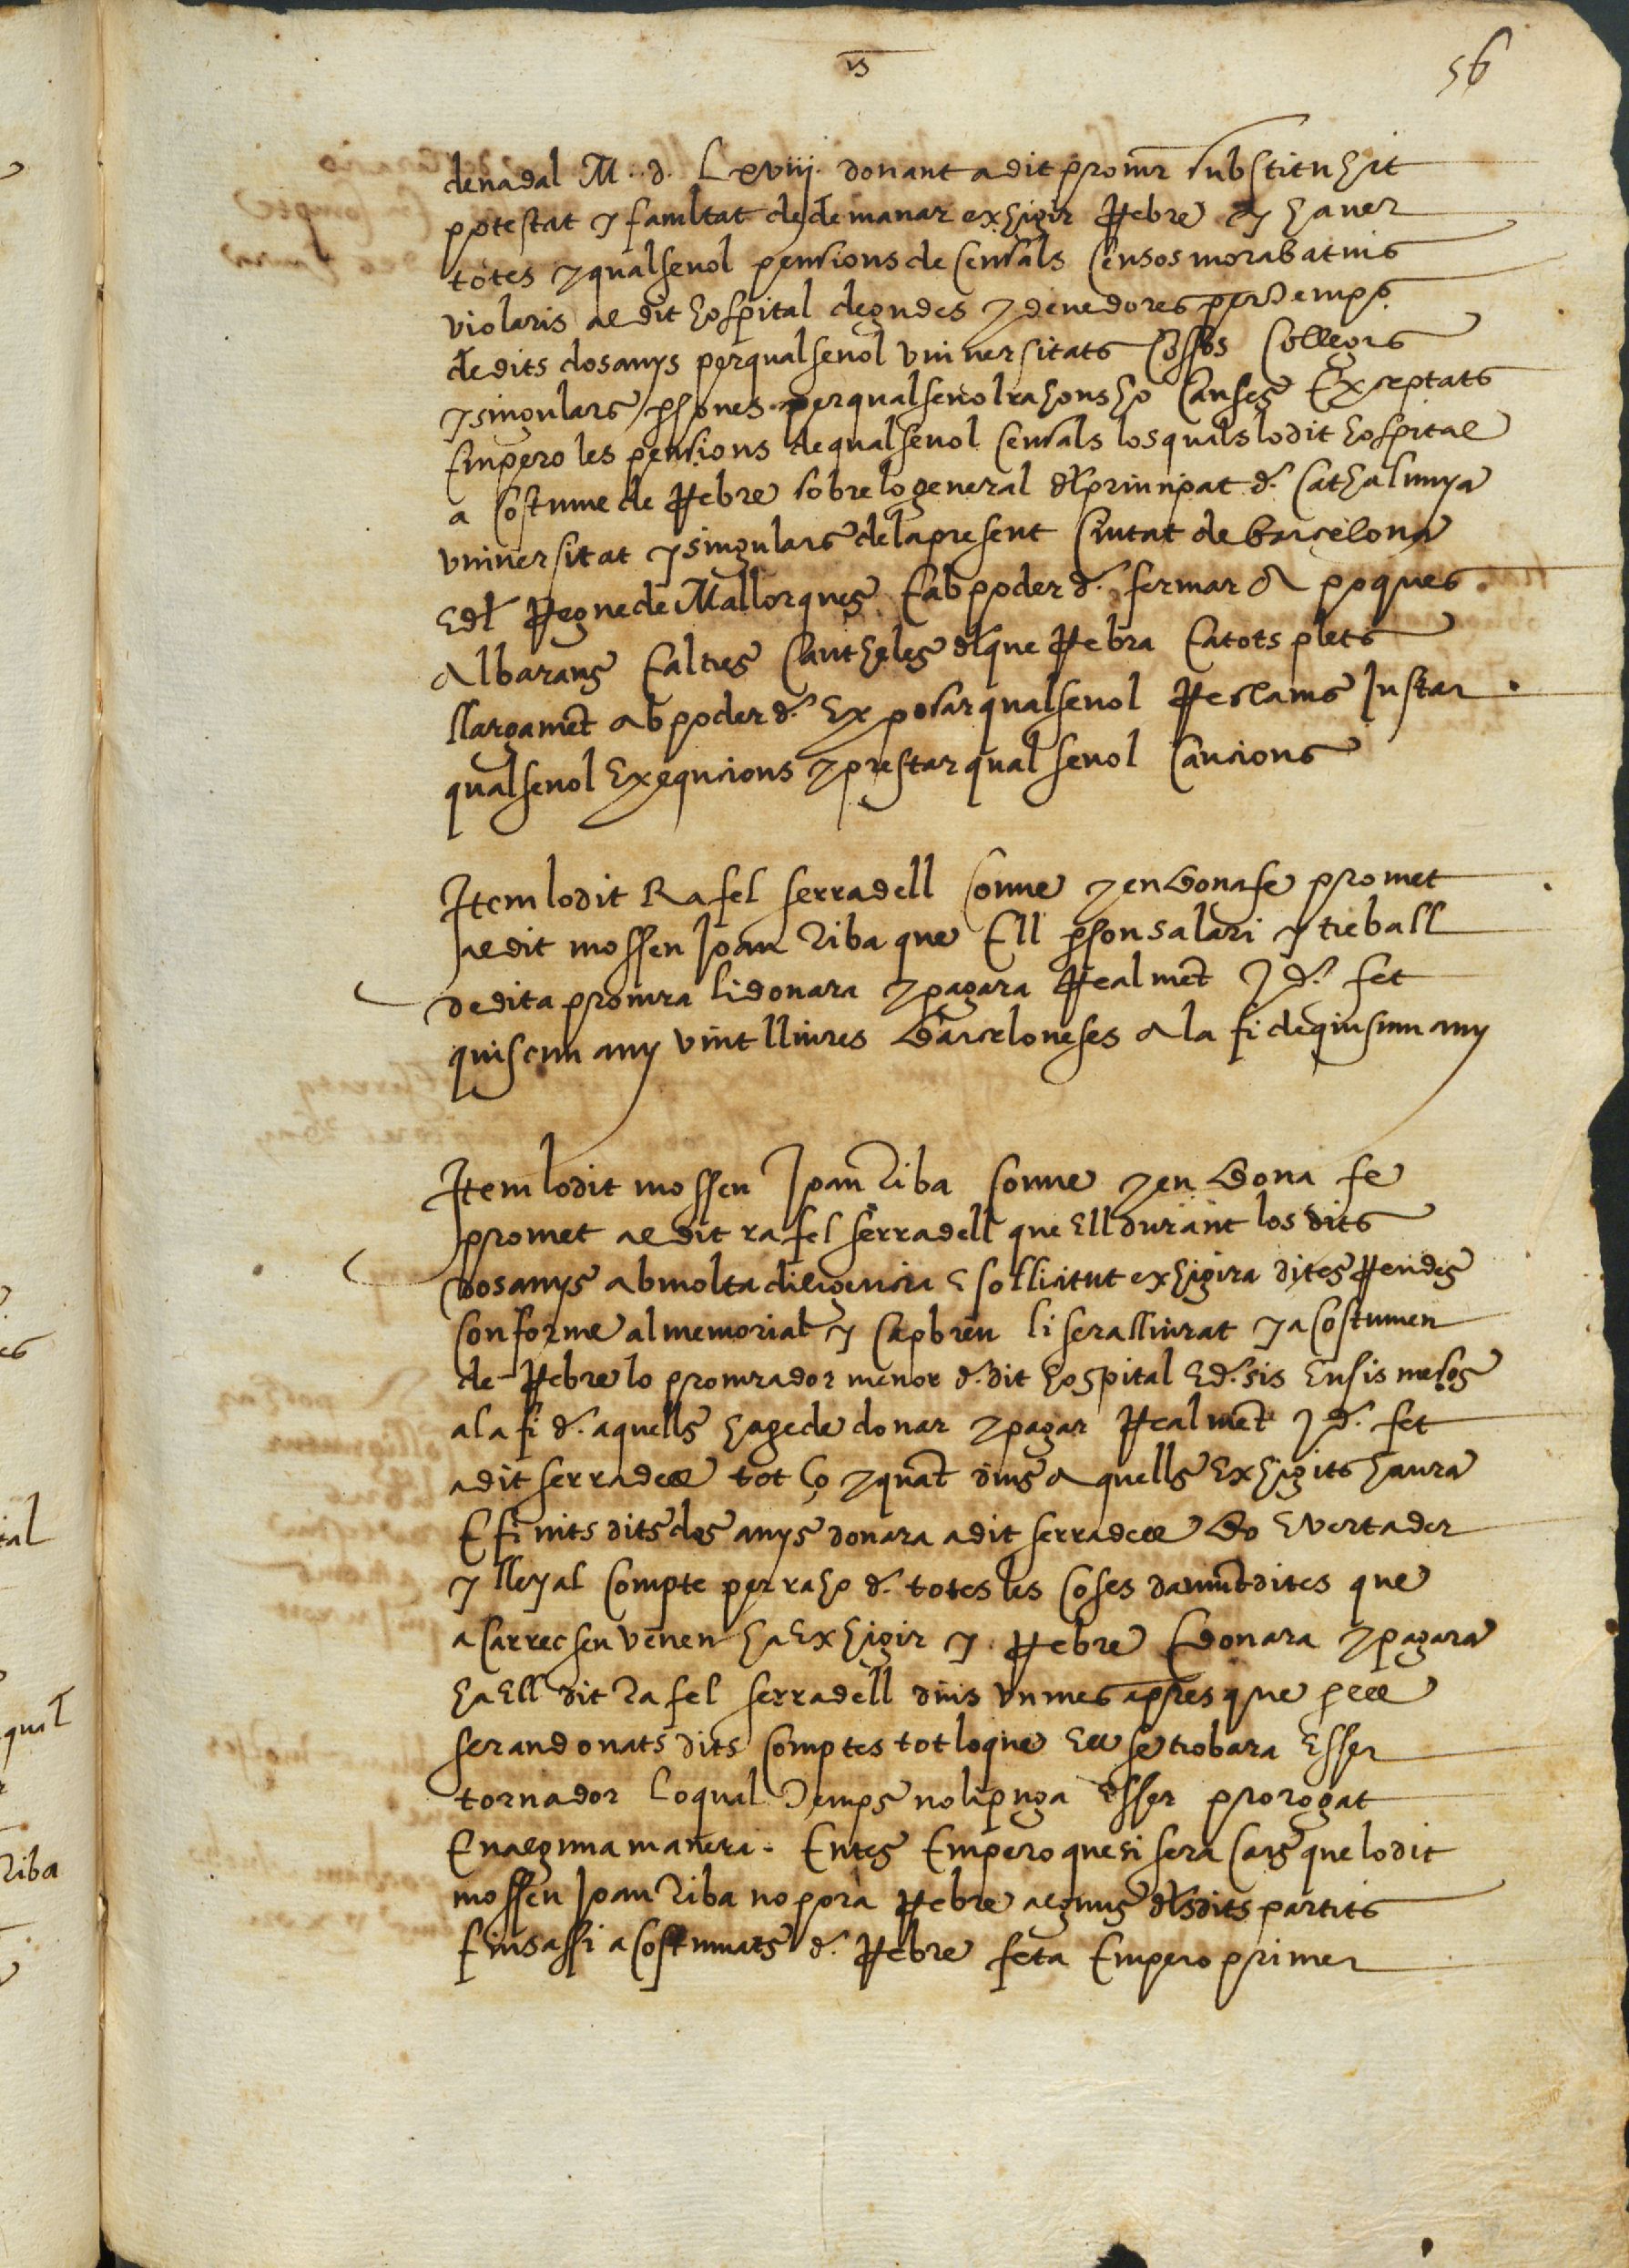 56
de nadal M. d. Lxviij. donant a dit procurr substituhit
potestat y facultat de demanar exhigir Rebre y haver
totes y qualsevol pensions de censals censos morabatins
violaris al dit hospital degudes y devedores per temps
de dits dos anys per qualsevol universitats cossos collegis
y singulars psones per qualsevol rahons ho causes Exceptats
Empero les pensions de qualsevol censals los quals lo dit hospital
a costume de Rebre sobre lo general dl principat d. Cathalunya
universitat y singulars de la present Ciutat de barcelona
E dl Regne de Mallorques E ab poder d. fermar apoques
Albarans E altres cautheles dl que Rebra E a tots plets
llargamet ab poder d. Exposar qualsevol Reclams Instar
qualsevol Exequcions y prestar qualsevol caucions
Item lo dit Rafel serradell conve y en bona fe promet
al dit mossen Joan Riba que Ell p son salari y treball
de dita procura li donara y pagara Realmet y d. fet
quiscun any vint lliures barceloneses a la fi de quiscun any
Item lo dit mossen Joan Riba conve y en bona fe
promet al dit rafel serradell que Ell durant los dits
dos anys ab molta diligencia E sollicitut exhigira dites Rendes
conforme al memorial y capbreu li sera lliurat y acostumen
de Rebre lo procurador menor d. dit hospital E d. sis En sis mesos
a la fi d. aquells hage de donar y pagar Realmet y d. fet
a dit serradell tot ço y quat dins aquells Exhigits haura
E finits dits dos anys donara a dit serradell bo E vertader
y lleyal compte per raho d. totes les coses damutdites que
a carrec seu venen ha Exhigir y Rebre E donara y pagara
ha Ell dit Rafel serradell dins un mes apres que p ell
seran donats dits comptes tot lo que Ell se trobara Esser
tornador lo qual temps no li puga Esser prorogat
En alguna manera. Entes Empero que si sera cars que lo dit
mossen Joan Riba no pora Rebre alguns dls dits partits
fins assi acostumats d. Rebre feta Empero primer